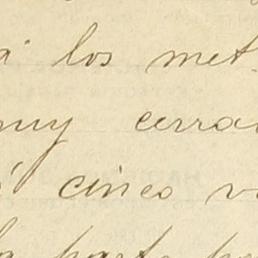 á los met
muy cerra
cinco v
la parte